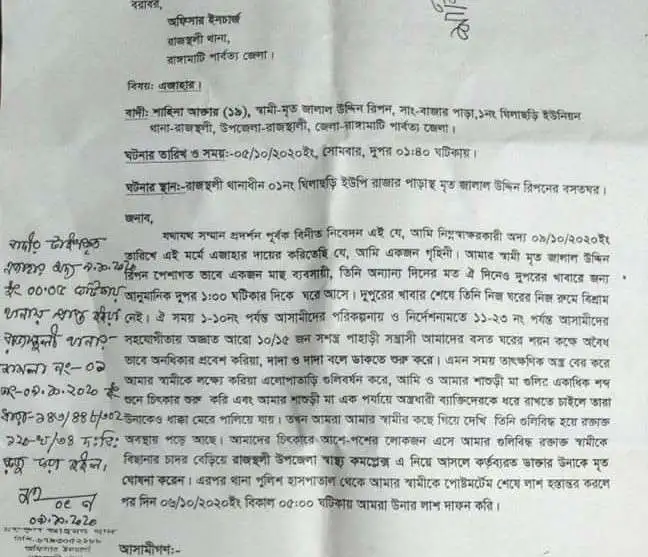 বরাবর,
অফিসার ইনচার্জ
রাজস্থলী থানা,
রাঙ্গামাটি পার্বত্য জেলা।
বিষয়: এজাহার।
বাদী: শাহিনা আক্তার (১৯), স্বামী-মৃত জালাল উদ্দিন রিপন, সাং-বাজার পাড়া,১নং ঘিলাছড়ি ইউনিয়ন
থানা-রাজস্থলী, উপজেলা-রাজস্থালী, জেলা-রাঙ্গামাটি পার্বত্য জেলা।
ঘটনার তারিখ ও সময়:-০৫/১০/২০২০ইং, সোমবার, দুপর ০১:৪০ ঘটিকায়।
ঘটনার স্থান:-রাজস্থলী থানাধীন ০১নং ঘিলাছড়ি ইউপি রাজার পাড়াস্থ মৃত জালাল উদ্দিন রিপনের বসতঘর।
জনাব,
যথাযথ সম্মান প্রদর্শন পূর্বক বিনীত নিবেদন এই যে, আমি নিম্নস্বাক্ষরকারী অদ্য ০৯/১০/২০২০ইং
তারিখে এই মর্মে এজাহার দায়ের করিতেছি যে, আমি একজন গৃহিনী। আমার স্বামী মৃত জালাল উদ্দিন
রিপন পেশাগত ভাবে একজন মাছ ব্যবসায়ী, তিনি অন্যান্য দিনের মত ঐ দিনেও দুপরের খাবারে জন্য
আনুমানিক দুপর ১:০০ ঘটিকার দিকে ঘরে আসে। দুপুরের খাবার শেষে তিনি নিজ ঘরের নিজ রুমে বিশ্রাম
নেই। ঐ সময় ১-১০নং পর্যন্ত আসামীদের পরিকল্পনায় ও নির্দেশনামতে ১১-২৩ নং পর্যন্ত আসামীদের
সহযোগীতায় অজ্ঞাত আরো ১০/১৫ জন সশস্ত্র পাহাড়ী সন্ত্রাসী আমাদের বসত ঘরের শয়ন কক্ষে অবৈধ
ভাবে অনধিকার প্রবেশ করিয়া, দাদা ও দাদা বলে ডাকতে শুরু করে। এমন সময় তাৎক্ষণিক অস্ত্র বের করে
আমার স্বামীকে লক্ষ্যে করিয়া এলোপাতাড়ি গুলিবর্ষন করে, আমি ও আমার শাশুড়ী মা গুলির একাধিক শব্দ
শুনে চিৎকার শুরু করি এবং আমার শাশুড়ী মা এক পর্যায়ে অস্ত্রধারী ব্যাক্তিদেরকে ধরে রাখতে চাইলে তারা
উনাকেও ধাক্কা মেরে পালিয়ে যায়। তখন আমরা আমার স্বামীর কাছে গিয়ে দেখি তিনি গুলিবিদ্ধ হয়ে রক্তাক্ত
অবস্থায় পড়ে আছে। আমাদের চিৎকারে আশে-পশের লোকজন এসে আমার গুলিবিদ্ধ রক্তাক্ত স্বামীকে
বিছানার চাদর বেড়িয়ে রাজস্থলী উপজেলা স্বাস্থ্য কমপ্লেক্স এ নিয়ে আসলে কর্তব্যরত ডাক্তার উনাকে মৃত
ঘোষনা করেন। এরপর থানা পুলিশ হাসপাতাল থেকে আমার স্বামীকে পোষ্টমর্টেম শেষে লাশ হস্তান্তর করলে
পর দিন ০৬/১০/২০২০ইং বিকাল ০৫:০০ ঘটিকায় আমরা উনার লাশ দাফন করি।
আসামীগণ:-
ইং ০০:০৫
থানার
মামলা নং- ০১